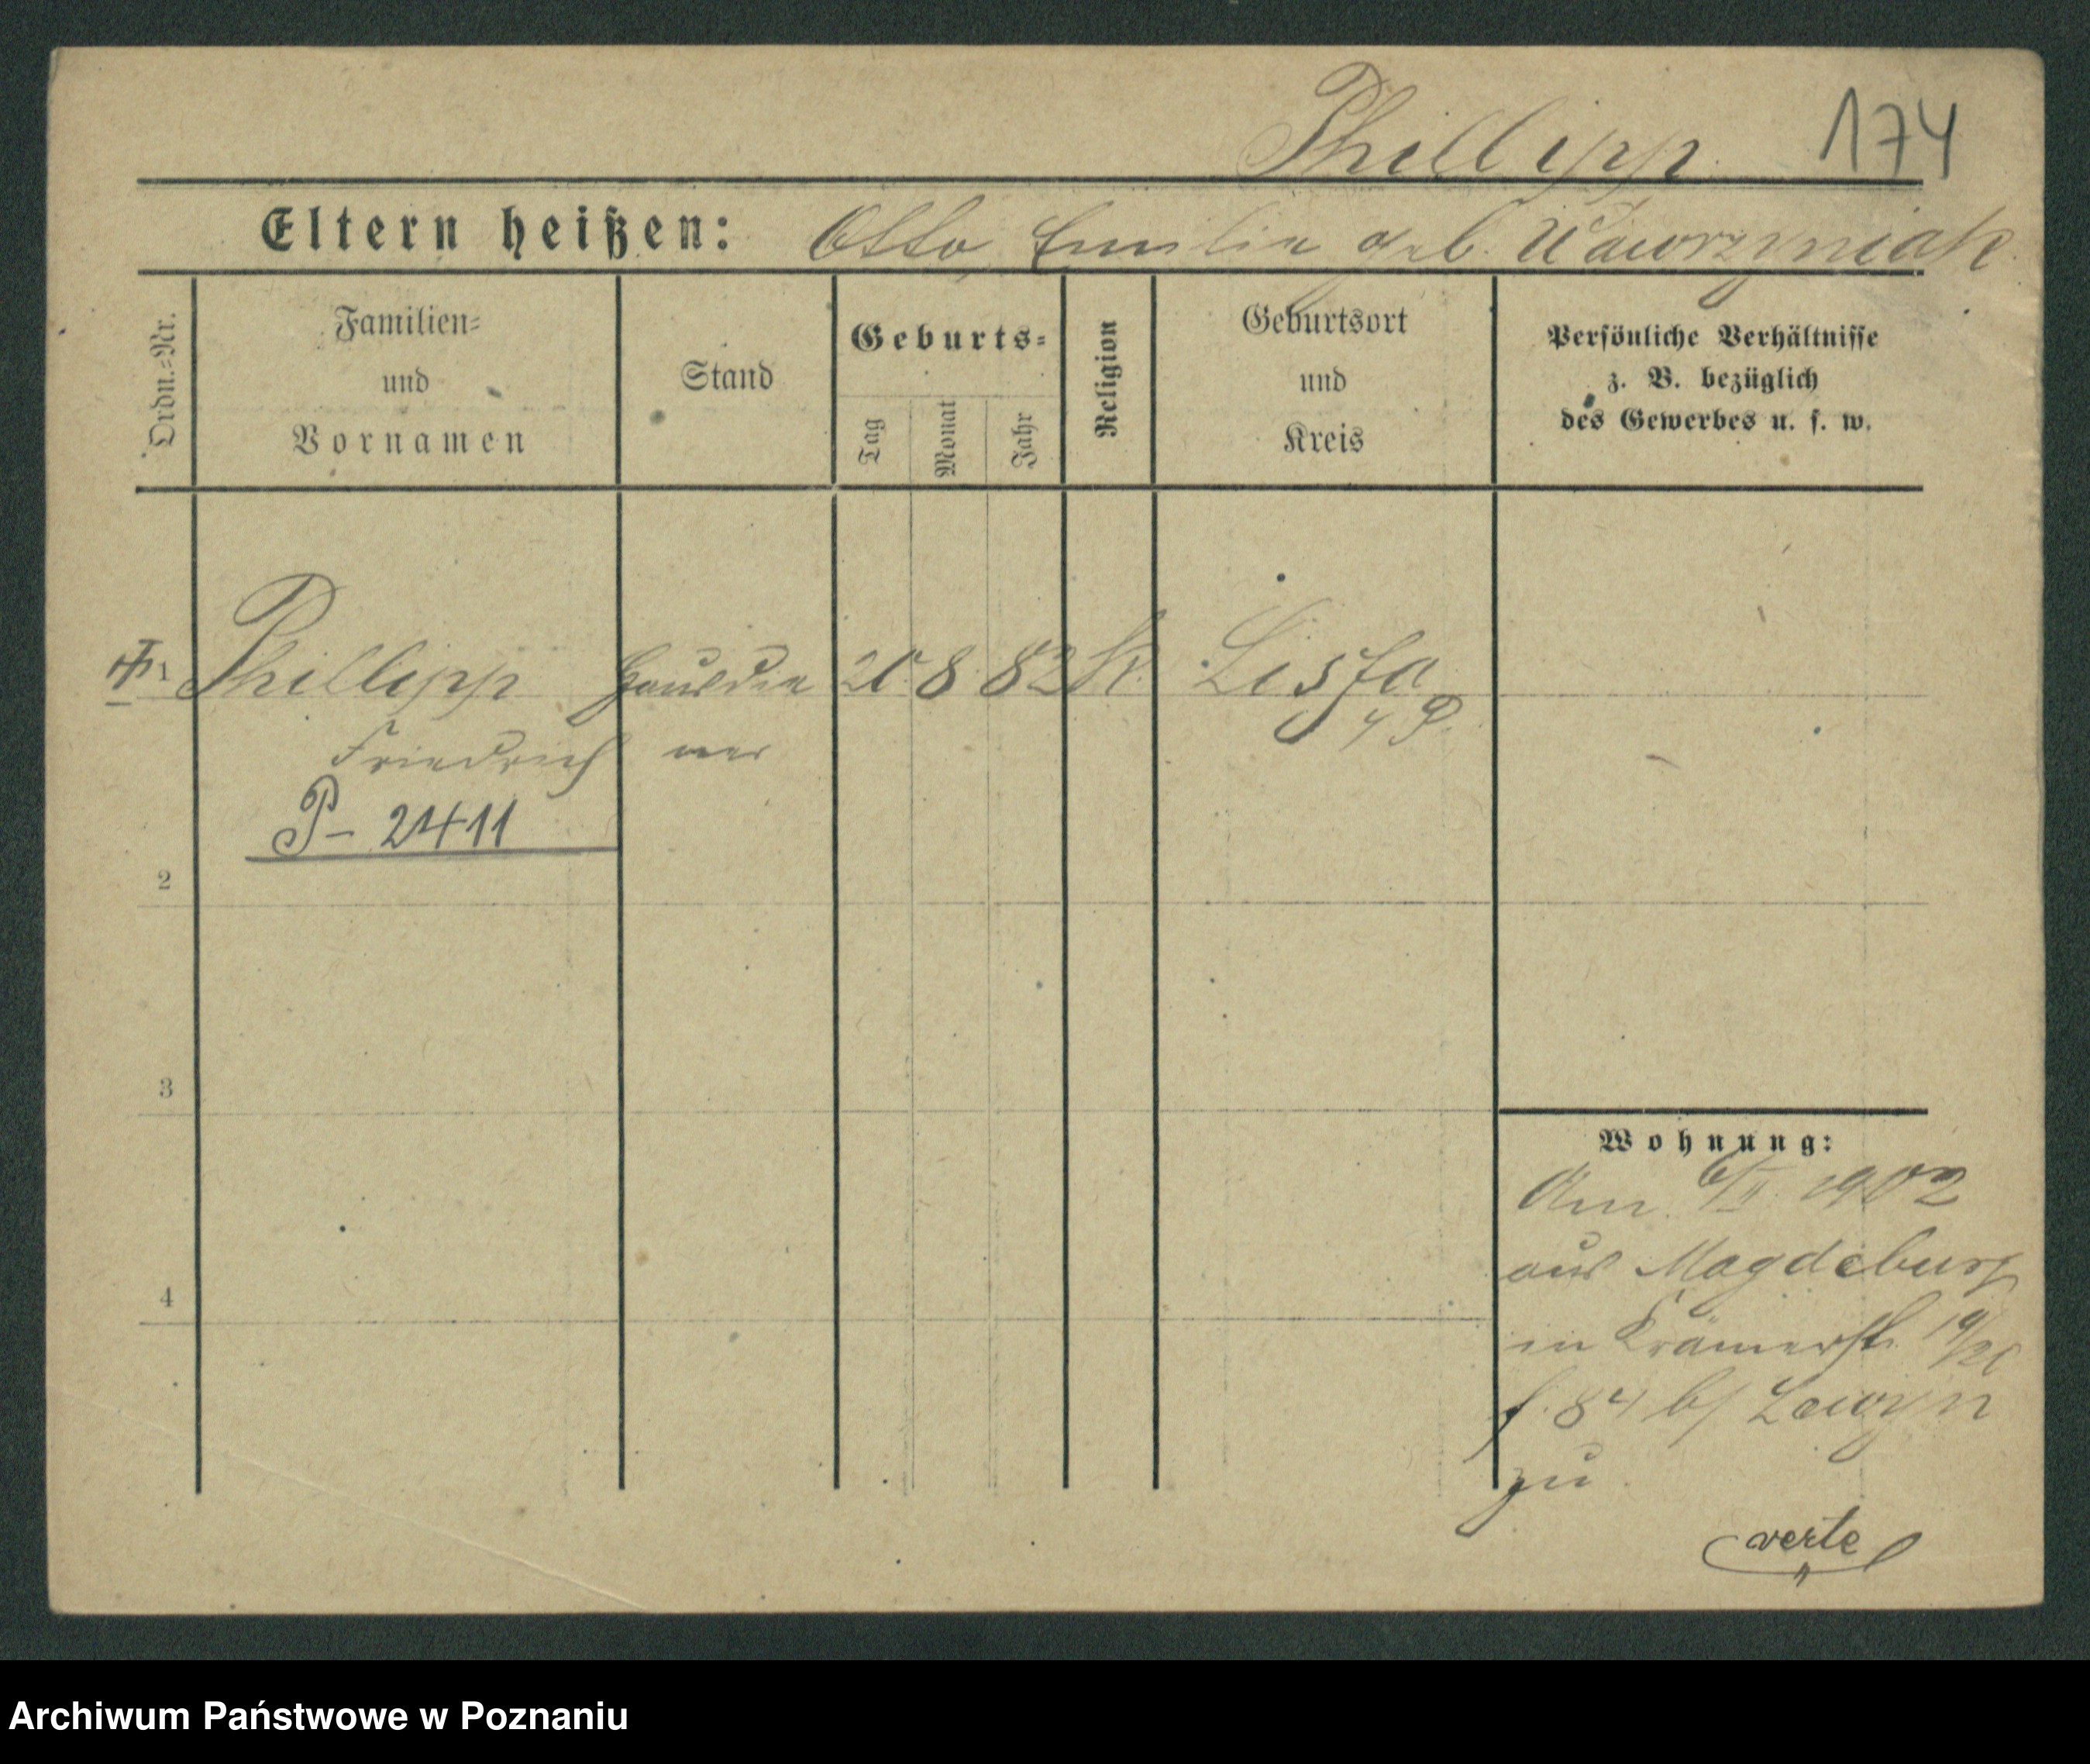 Phillipp 174
Eltern heißen: Otto Emilie geb. Wawrzyniak
Ordn.=Nr.
Familien=
und
Vornamen
Stand
Geburts=
Tag
Monat
Jahr
Religion
Geburtsort
und
Kreis
Persönliche Verhältnisse
z. B. bezüglich
des Gewerbes u. s. w.
1 Phillipp Hausdie 8 82 K.
Friedrich ner
P- 2411
2
3
4
Wohnung:
Am 6/II 1902
aus Magdeburg
in Krämerstr. 19/20
b/ Lewzyn
zu
verte
Archiwum Państwowe w Poznaniu